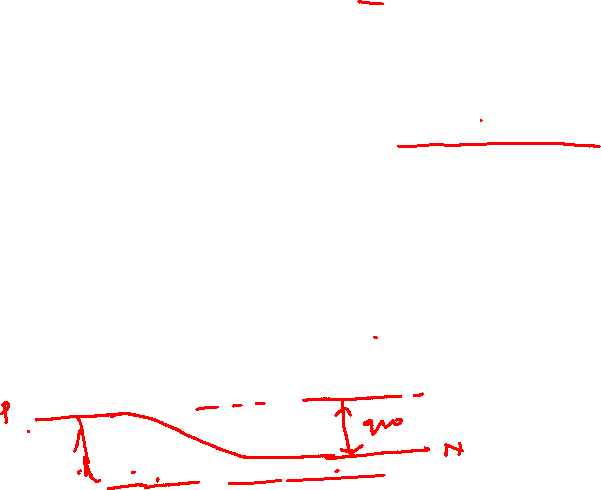 P
qV0
N